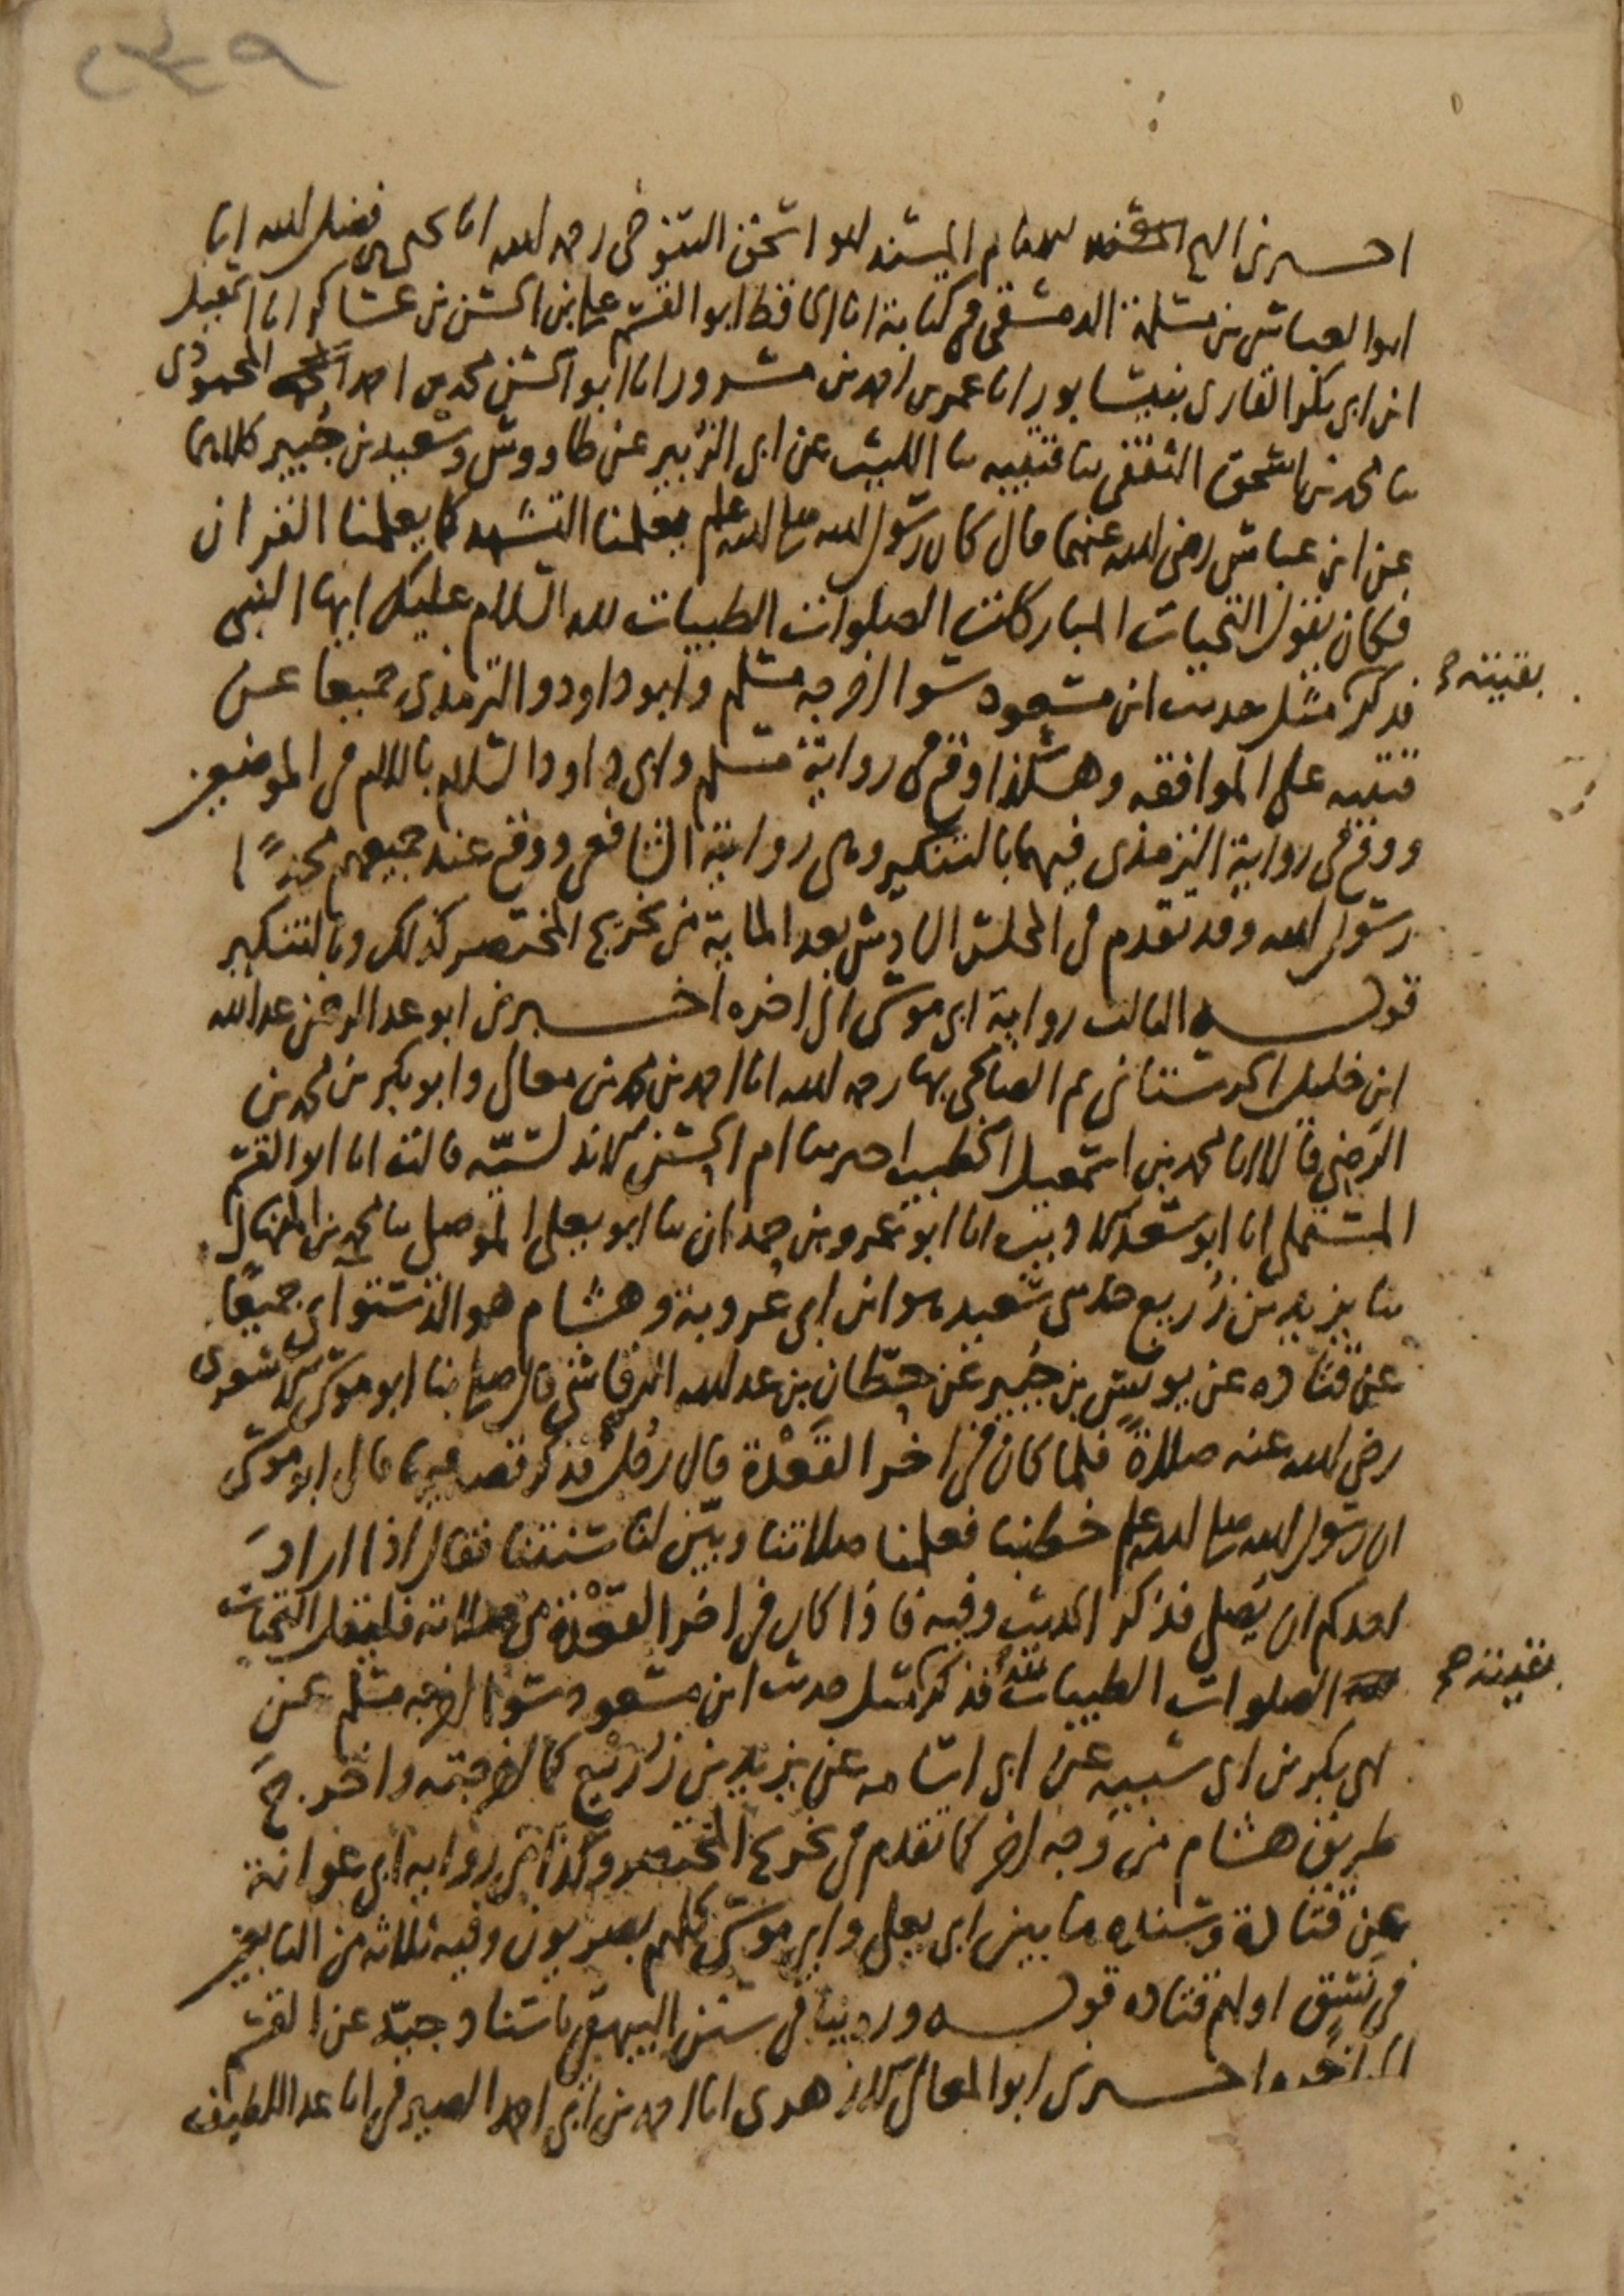 ٢٣٩
اخبرني الامام المسند ابو اسحق التنوخي رحمه الله انا يحيى بن فضل الله انا
ابو العباس بن مسلمة الدمشقي في كتابه انا الحافظ ابو القسم علي بن الحسن بن عساكر انا اسمعيل
ابن ابي بكر القاري بنيسابور انا عمر بن احمد بن مسرور انا ابو الحسن محمد بن احمد المحمودي
ثنا محمد بن اسحق الثقفي ثنا قتيبه ثنا الليث عن ابي الزبير عن طاووس وسعيد بن جبير كلاهما
عن ابن عباس رضي الله عنهما قال كان رسول الله صلى الله عليه وسلم يعلمنا التشهد كما يعلمنا القران
فكان يقول التحيات المباركات الصلوات الطيبات لله السلام عليك ايها النبي
فذكر مثل حديث ابن مسعود سوا اخرجه مسلم وابو داود والترمذي جميعا عن
بقيته
قتيبه على الموافقه وهكذا وقع في رواية مسلم وابي داود السلام بالالم في الموضعين
ووقع في رواية الترمذي فيهما بالتنكير وهي رواية الشافعي ووقع عند جميعهم محمدًا
رسول الله وقد تقدم في المجلس السادس بعد الماية من تخريج المختصر كذلك وبالتنكير
قوله الثالث رواية ابي موسى الى اخره اخبرني ابو عبد الرحمن عبد الله
ابن خليل الحرستاني ثم الصالحي بها رحمه الله انا احمد بن محمد بن معالي وابو بكر بن محمد بن
الرضي قالا انا محمد بن اسمعيل الخطيب اخبرتنا ام الحسن الاندلسيّه قالت انا ابو القسم
المستملي انا ابو سعد الاديب انا ابو عمرو بن حمدان ثنا ابو يعلى الموصلي ثنا محمد بن المنهال
ثنا يزيد بن زُريع حدثني سعيد هو ابن ابي عَروبة وهشام هو الدستواي جميعًا
عن قتاده عن يونس بن جُبير عن حِطّان بن عبد الله الرقاشي قال صلى بنا ابو موسى الاشعري
رضي الله عنه صلاةً فلما كان في اخر القَعْدة قال رجل فذكر قصه فيها قال ابو موسى
ان رسول الله صلى الله عليه وسلم خطبنا فعلمنا صلاتنا وبيّن لنا سنتنا فقال اذا ارادَ
احدكم ان يُصلي فذكر الحديث وفيه فاذا كان في اخر القَعْدة من صلاته فليقل التحيات
الصلوات الطيبات لله فذكر مثل حديث ابن مسعود سوا اخرجه مسلم عن
بقيته
ابي بكر بن ابي شيبه عن ابي اسامه عن يزيد بن زُريع كما اخرجته واخرجَ
طريق هشام من وجه اخر كما تقدم في تخريج المختصر وكذا في روايه ابي عوانة
عن قتادة وسنده ما بين ابي يعلى وابي موسى كلهم بصريون وفيه ثلاثه من التابعين
في نسق اولهم قتاده قوله وروينا في سنن البيهقي باسناد جيّد عن القسم
الى اخره اخبرني ابو المعالي الازهري انا احمد بن ابي احمد الصيرفي انا عبد اللطيف